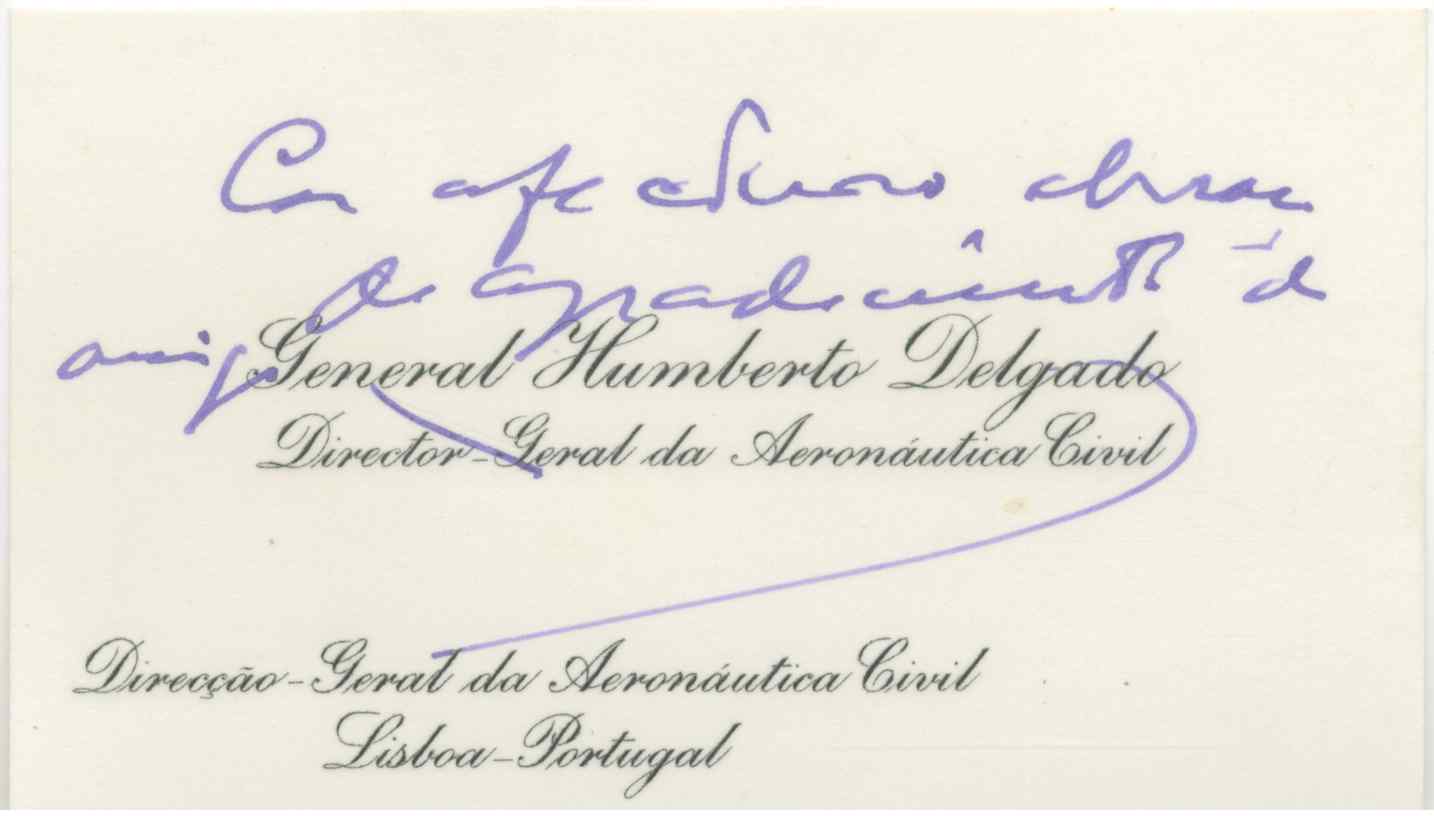 Com afectuoso abraço
de agradecimento do
amigo
General Humberto Delgado
Director-Geral da Aeronáutica Civil
Direcção-Geral da Aeronáutica Civil
Lisboa-Portugal